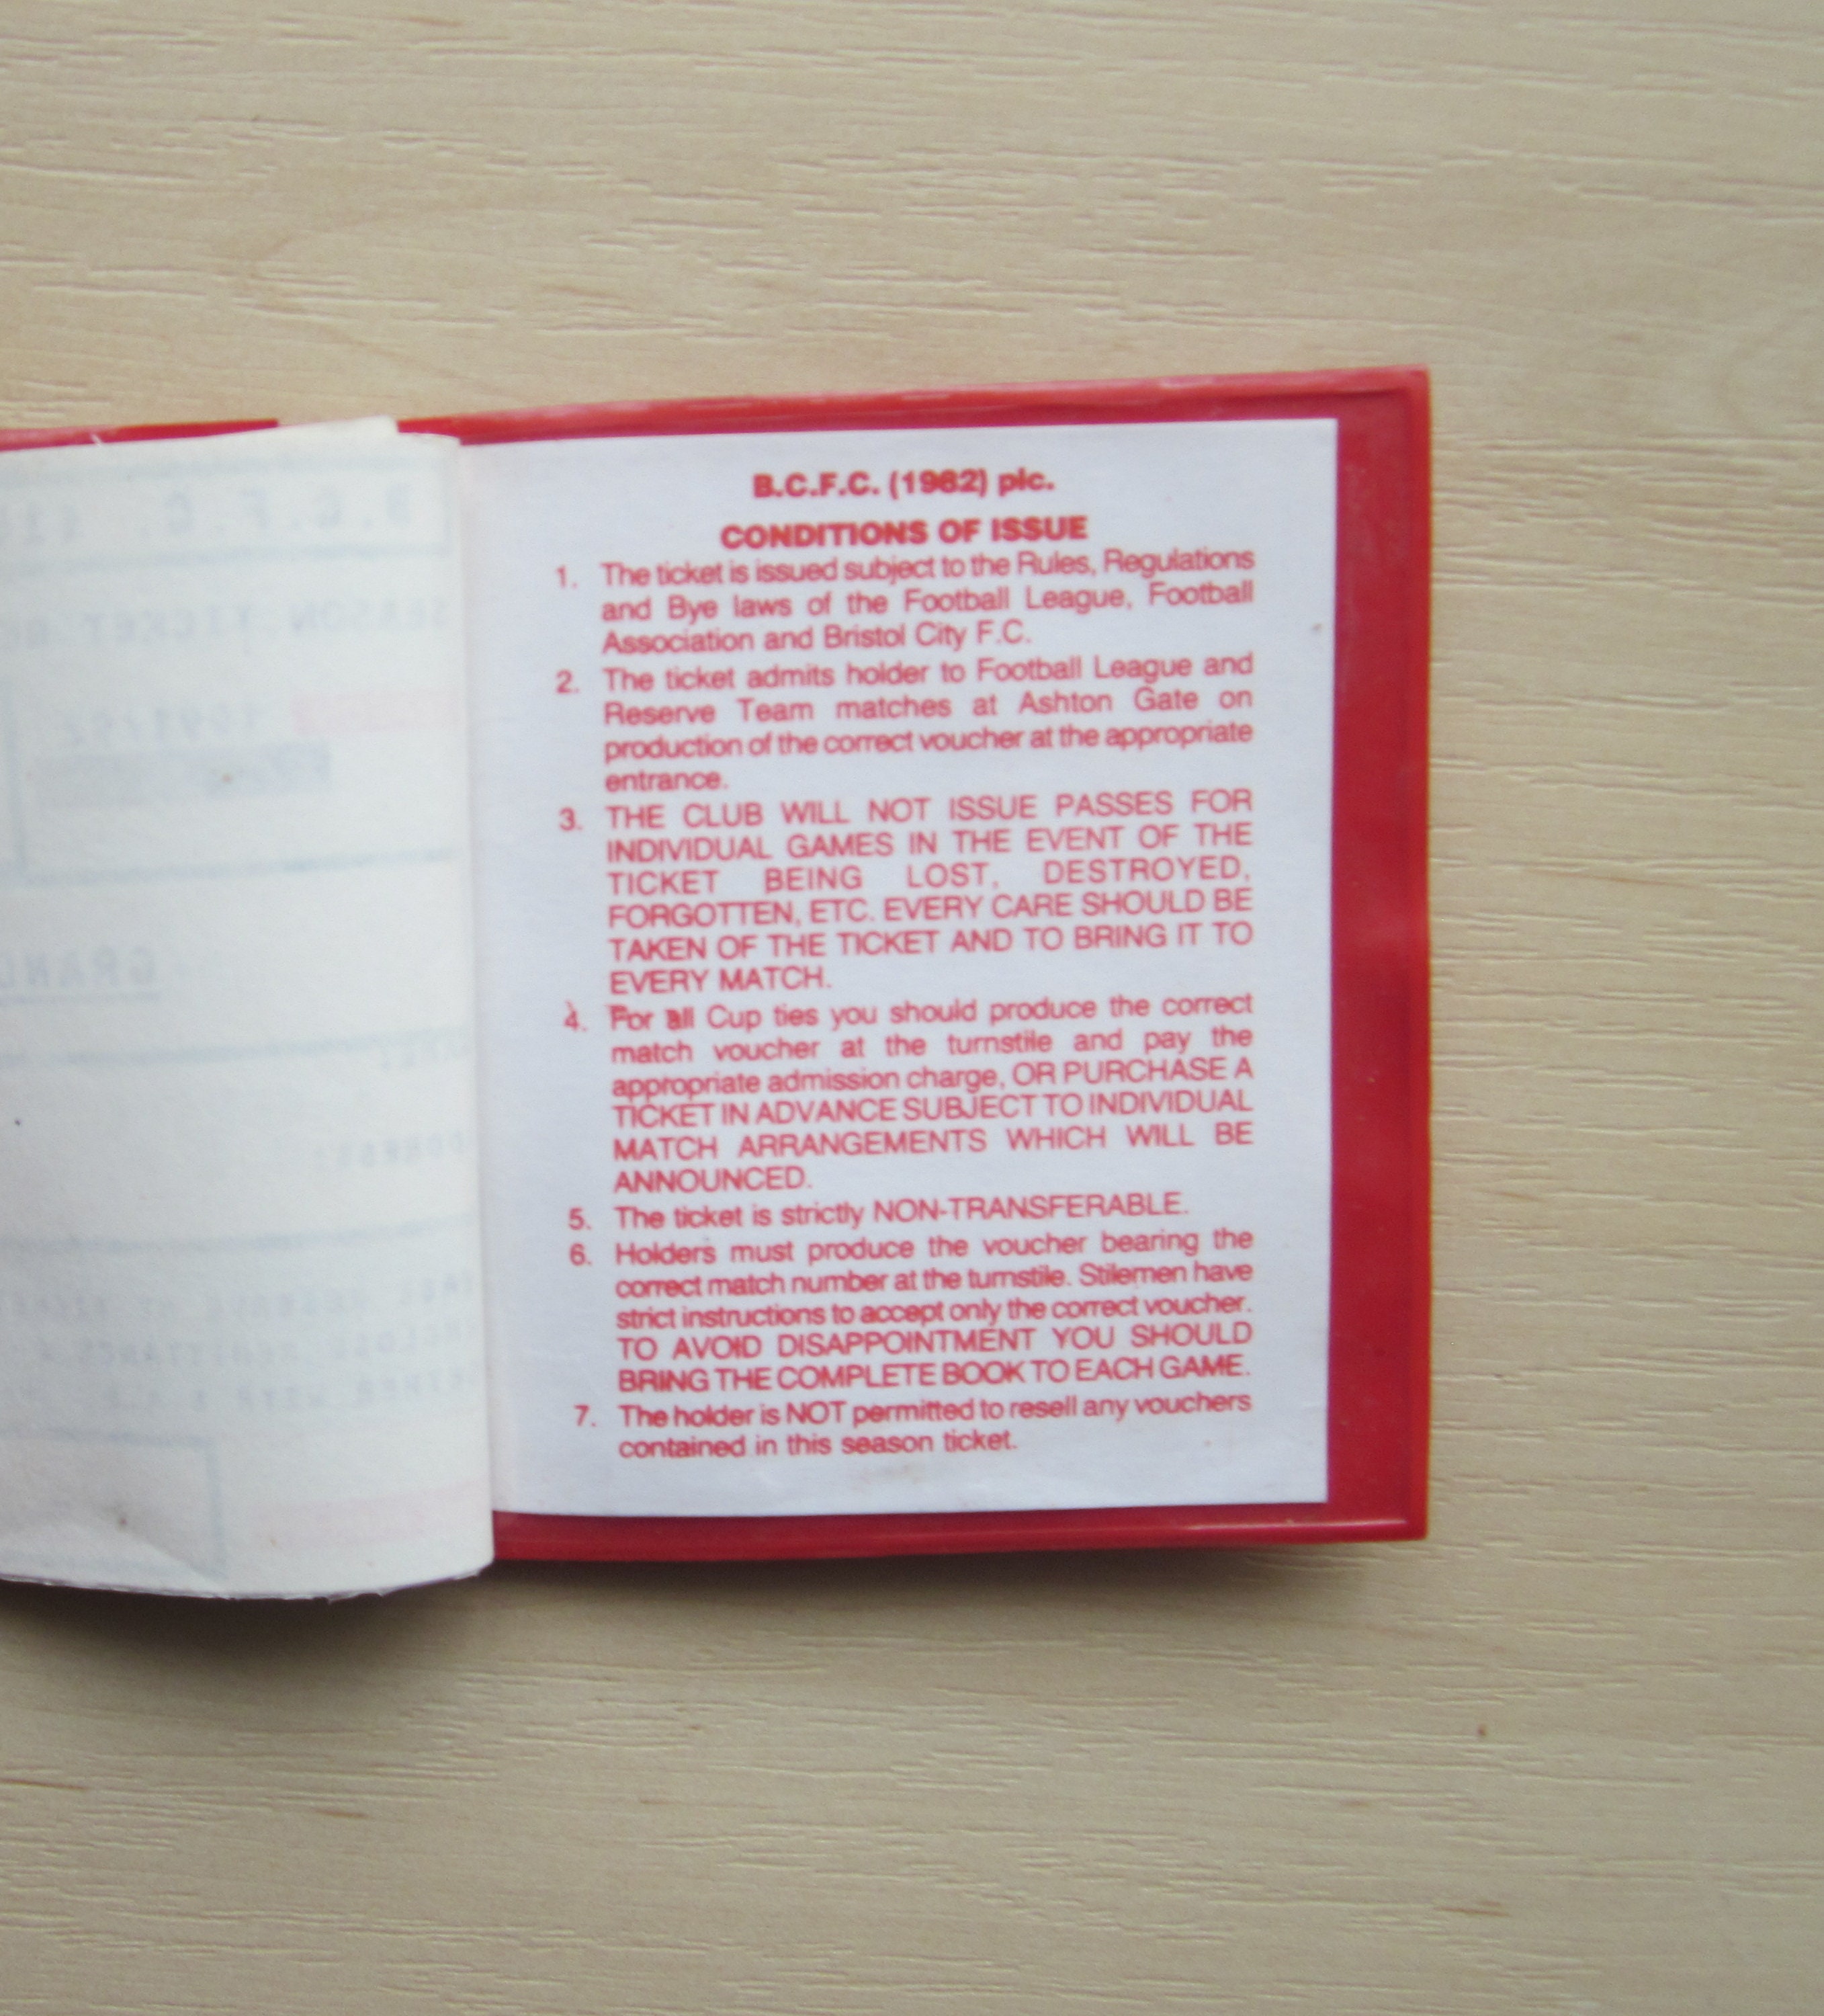 B.C.F.C. (1982) plc.
CONDITIONS OF ISSUE
1. The ticket is issued subject to the Rules, Regulations
and Bye laws of the Football League, Football
Association and Bristol City F.C.
2. The ticket admits holder to Football League and
Reserve Team matches at Ashton Gate on
production of the correct voucher at the appropriate
entrance.
3. THE CLUB WILL NOT ISSUE PASSES FOR
INDIVIDUAL GAMES IN THE EVENT OF THE
TICKET BEING LOST, DESTROYED,
FORGOTTEN, ETC. EVERY CARE SHOULD BE
TAKEN OF THE TICKET AND TO BRING IT TO
EVERY MATCH.
4. For all Cup ties you should produce the correct
match voucher at the turnstile and pay the
appropriate admission charge, OR PURCHASE A
TICKET IN ADVANCE SUBJECT TO INDIVIDUAL
MATCH ARRANGEMENTS WHICH WILL BE
ANNOUNCED.
5. The ticket is strictly NON-TRANSFERABLE.
6. Holders must produce the voucher bearing the
correct match number at the turnstile. Stilemen have
strict instructions to accept only the correct voucher.
TO AVOID DISAPPOINTMENT YOU SHOULD
BRING THE COMPLETE BOOK TO EACH GAME.
7. The holder is NOT permitted to resell any vouchers
contained in this season ticket.